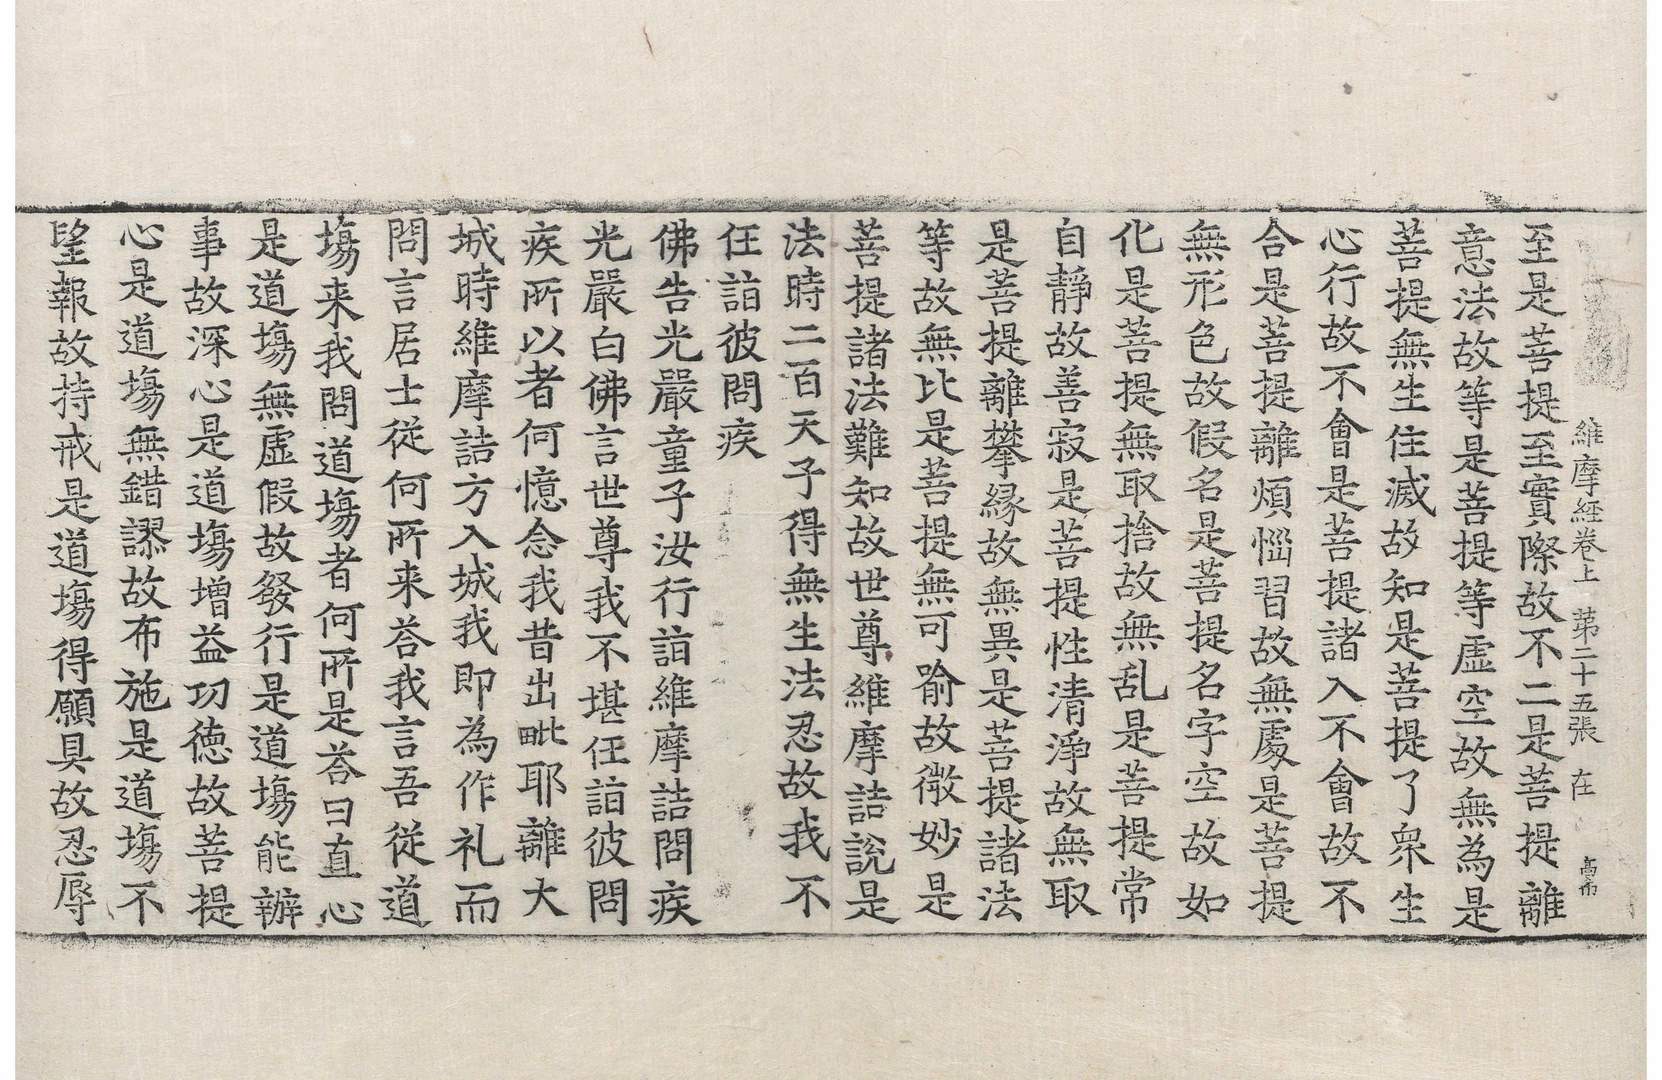 維摩経巻上 苐二十五張 在
至是菩提至實際故不二是菩提離
意法故等是菩提等虛空故無為是
菩提無生住滅故知是菩提了衆生
心行故不會是菩提諸入不會故不
合是菩提離煩惱習故無處是菩提
無形色故假名是菩提名字空故如
化是菩提無取捨故無乱是菩提常
自靜故善寂是菩提性清淨故無取
是菩提離攀縁故無異是菩提諸法
等故無比是菩提無可喻故微妙是
菩提諸法難知故世尊維摩詰說是
法時二百天子得無生法忍故我不
任詣彼問疾
佛告光嚴童子汝行詣維摩詰問疾
光嚴白佛言世尊我不堪任詣彼問
疾所以者何憶念我昔出毗耶離大
城時維摩詰方入城我即為作礼而
問言居士從何所来荅我言吾從道
場来我問道場者何所是荅曰直心
是道場無虛假故發行是道場能辦
事故深心是道場增益功徳故菩提
心是道場無錯謬故布施是道場不
望報故持戒是道場得願具故忍辱